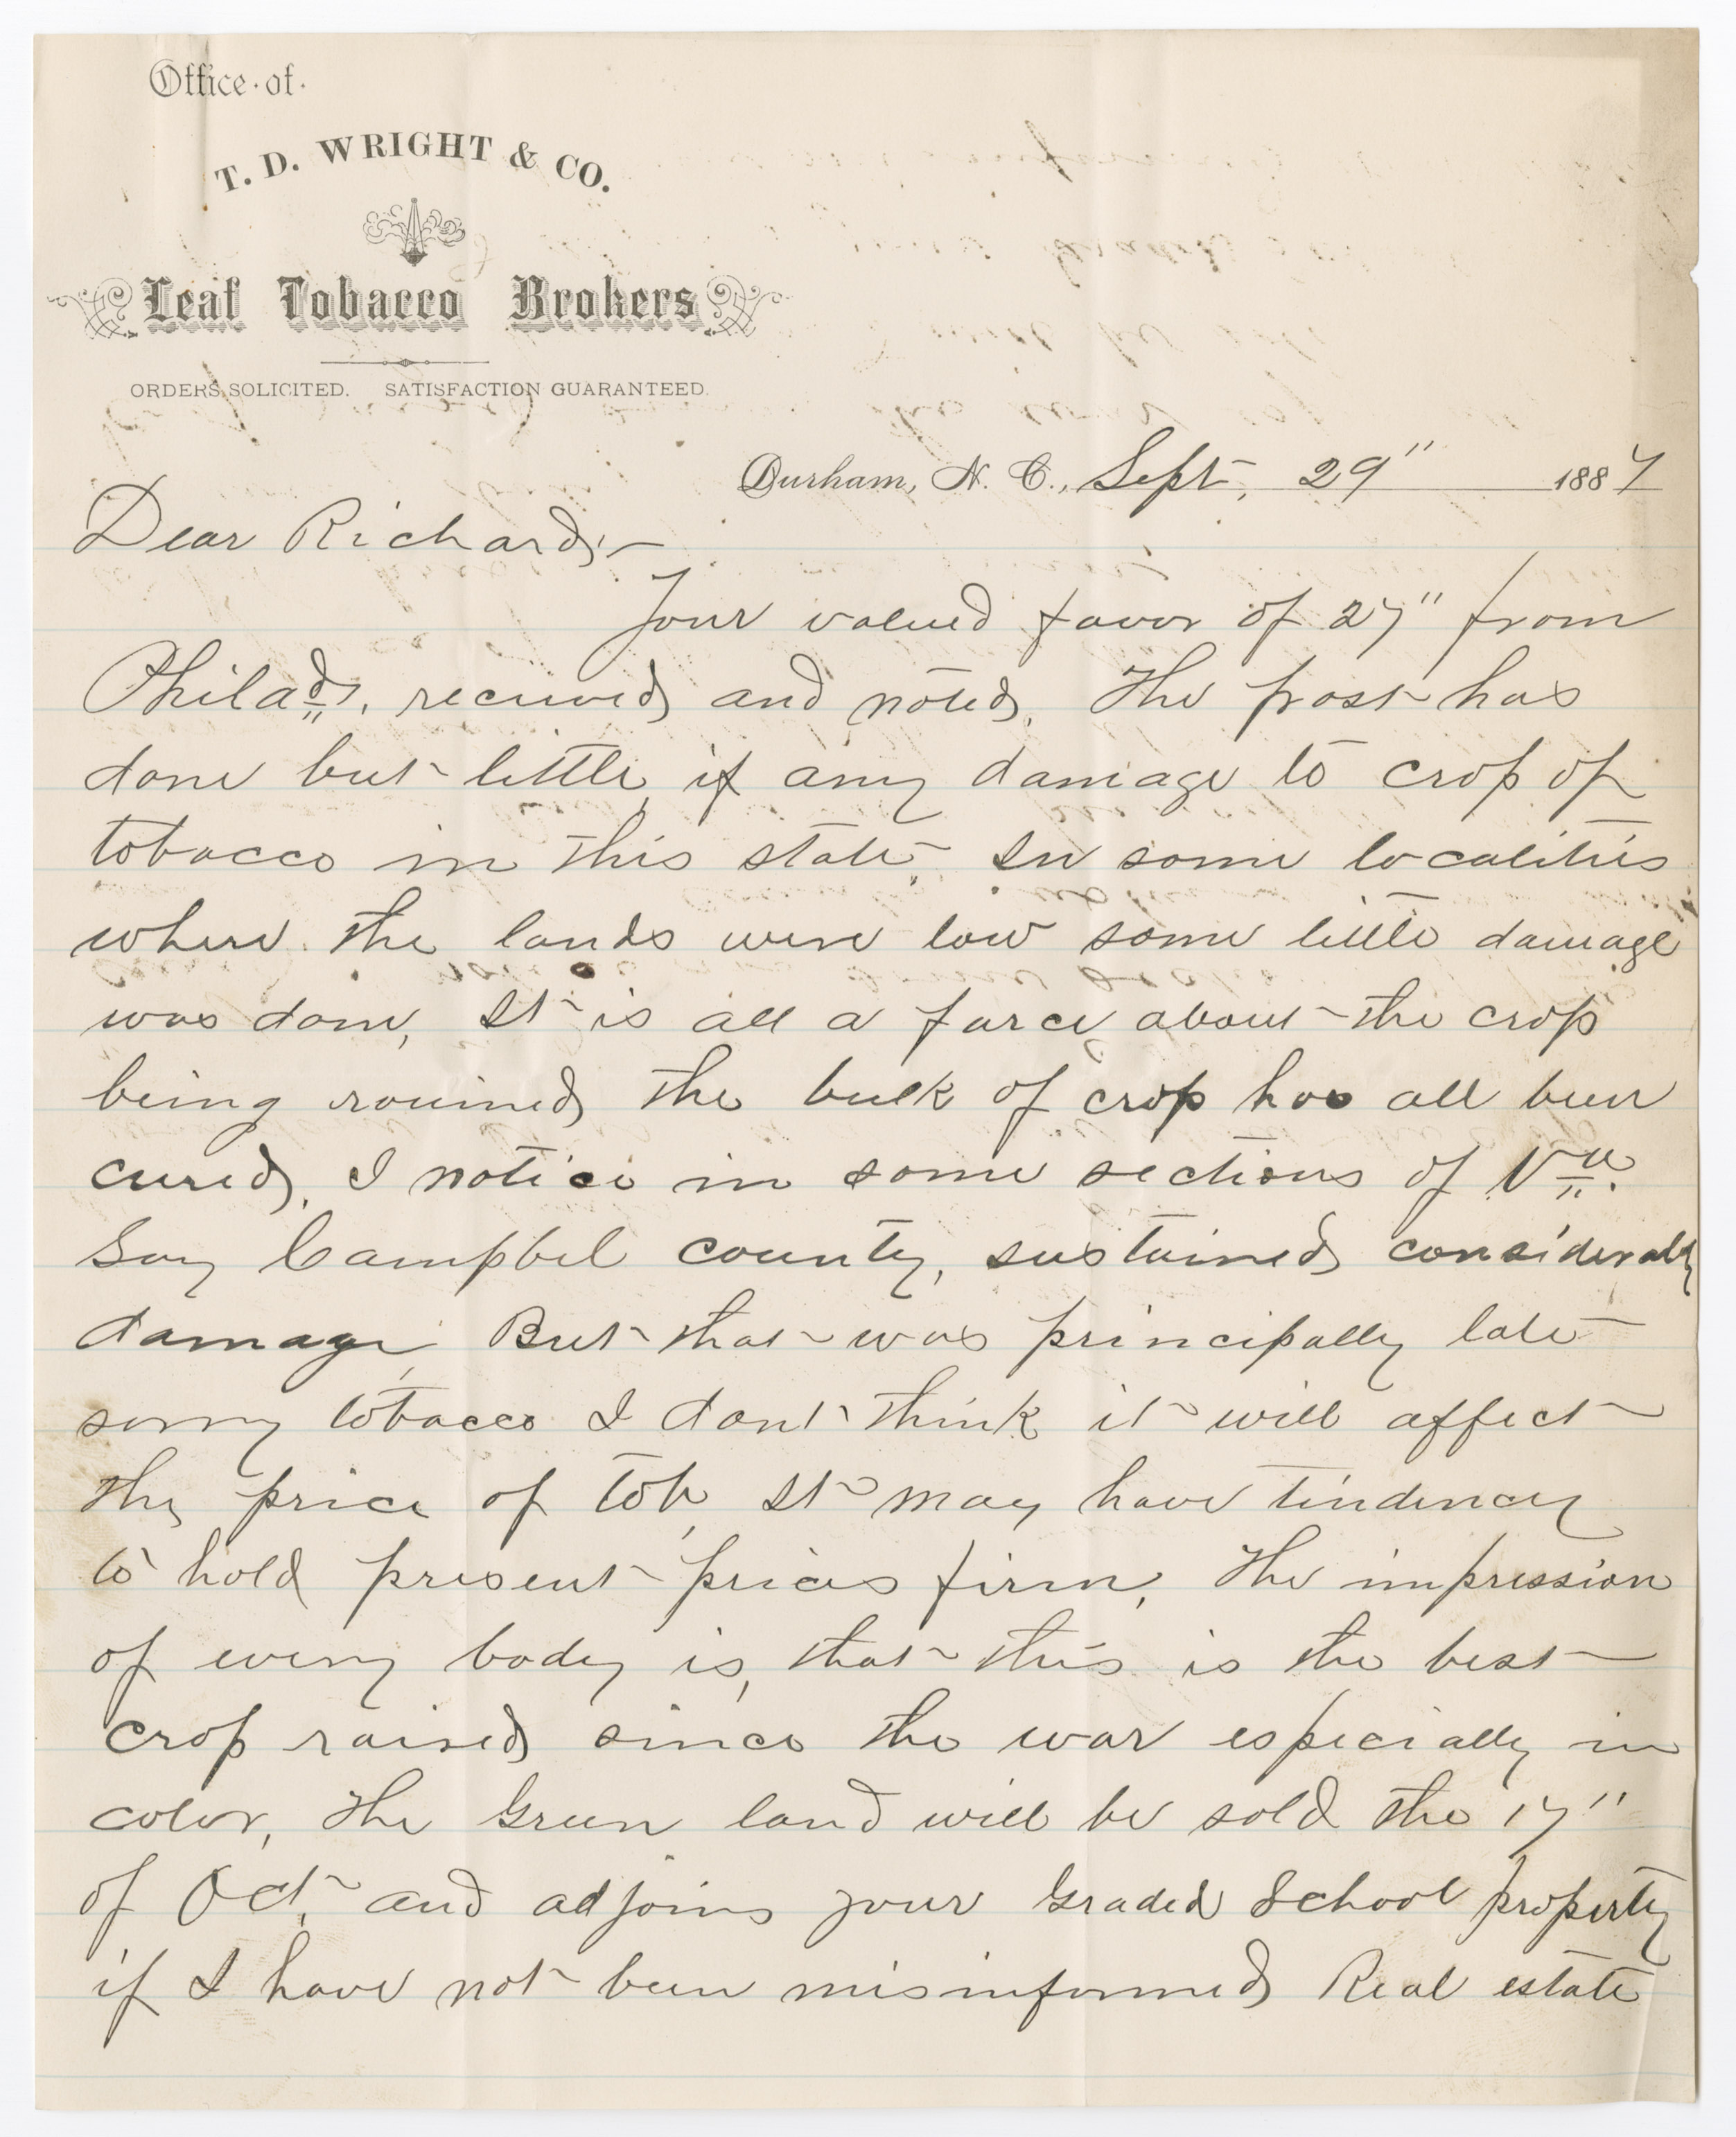 Office of
T. D. WRIGHT & CO.
Leaf Tobacco Brokers
ORDERS SOLICITED. SATISFACTION GUARANTEED.
Durham, N. C., Sept, 29" 1887
Dear Richard,—
Your valued favor of 27" from
Philada, received and noted. The frost has
done but little, if any damage to crop of
tobacco in this state. In some localities
where the lands were low some little damage
was done, It is all a farce, about the crop
being rouined, the bulk of crop has all been
cured, I notice in some sections of Va.
Say Campbel county, sustained considerably
damage, But that was principally late
sorry tobacco I dont think it will affect
the price of tob, It may have tendency
to hold present prices firm, The impression
of every body is, that this is the best
crop raised since the war especially in
color, The Green land will be sold the 17"
of Oct, and adjoins your Graded School property
if I have not been misinformed, Real estate